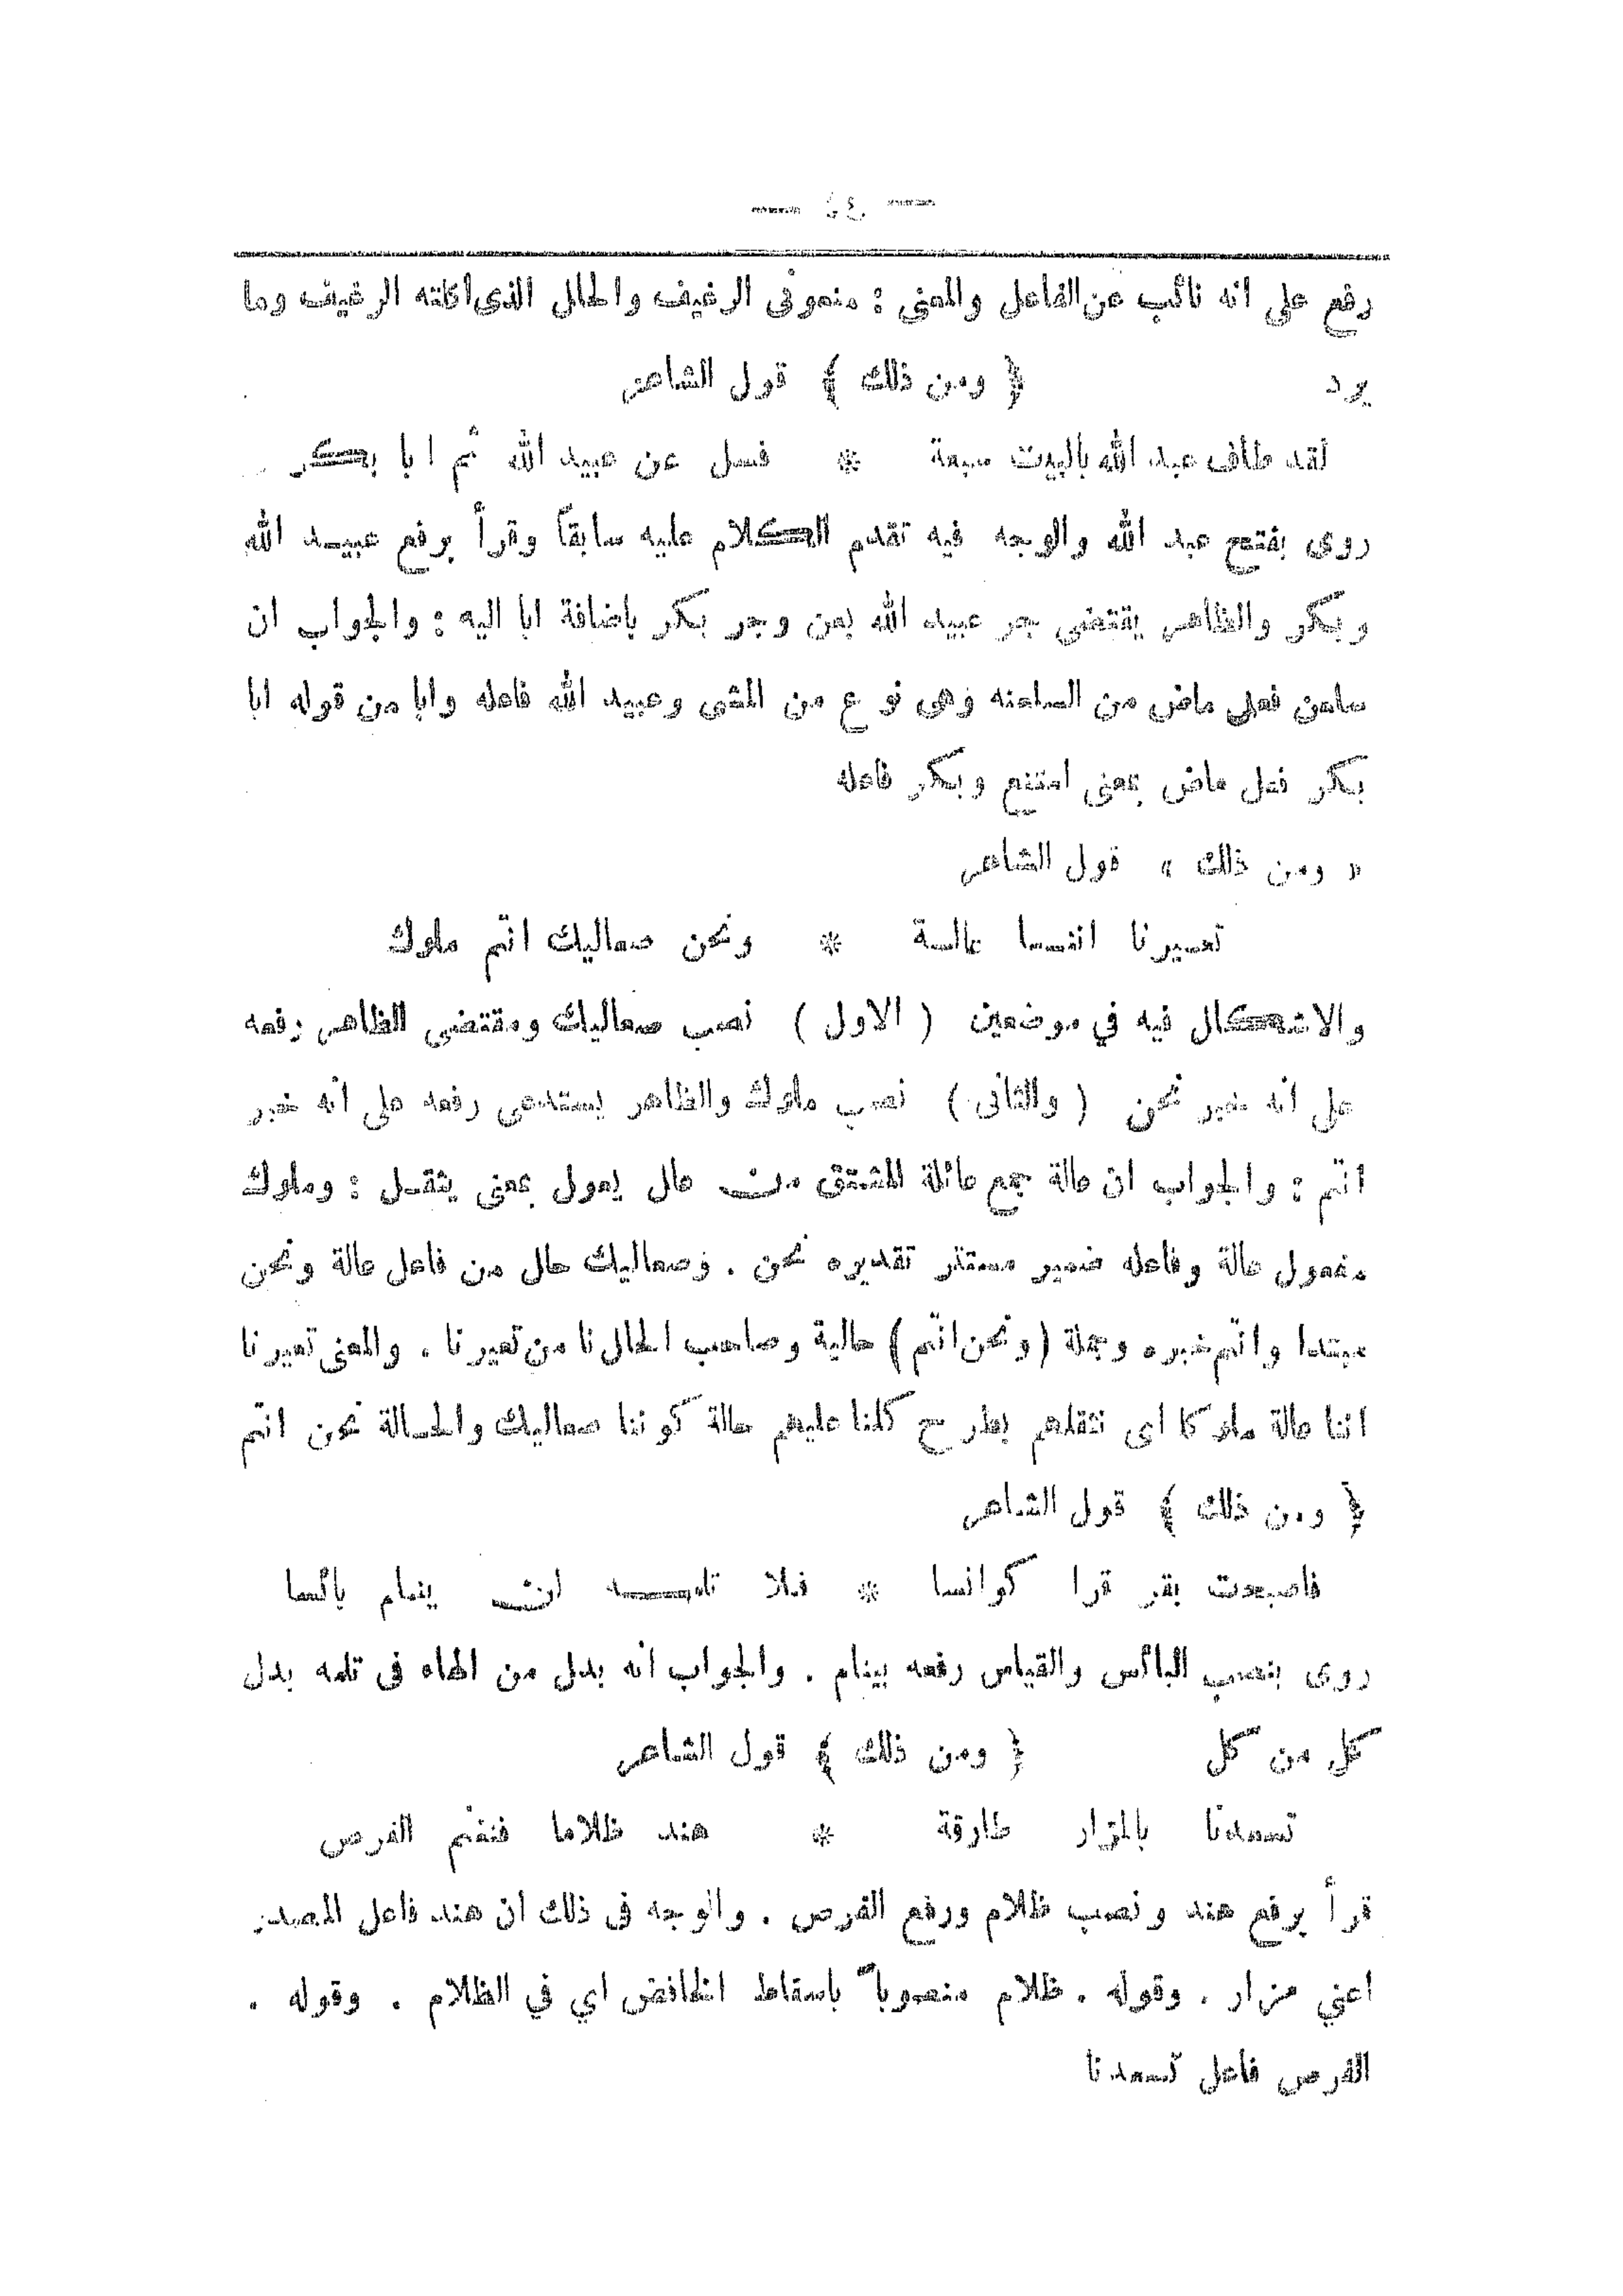 رفع على انه نائب عن الفاعل والمعنى : منعوفى الرغيف والحال الذى اكلته الرغيف وما
يرد ﴿ ومن ذلك ﴾ قول الشاعر
لقد طاف عبد الله بالبيت سبعة * فسل عن عبيد الله ثم ابا بكر
روى بفتح عبد الله والوجه فيه تقدم الكلام عليه سابقاً وقرأ برفع عبيد الله
وبكر والظاهر يقتضى جر عبيد الله بعن وجر بكر باضافة ابا اليه : والجواب ان
سلعن فعل ماض من السلعنه وهى نوع من المشى وعبيد الله فاعله وابا من قوله ابا
بكر فعل ماض بمعنى امتنع وبكر فاعله
« ومن ذلك » قول الشاعر
تعيرنا اننا عالة * ونحن صعاليك انتم ملوك
والاشكال فيه في موضعين ( الاول ) نصب صعاليك ومقتضى الظاهر رفعه
على انه خبر نحن ( والثانى ) نصب ملوك والظاهر يستدعى رفعه على انه خبر
انتم : والجواب ان عالة جمع عائلة المشتق من عال يعول بمعنى يثقل : وملوك
مفعول عالة وفاعله ضمير مستتر تقديره نحن . وصعاليك حال من فاعل عالة ونحن
مبتدا وانتم خبره وجملة (ونحن انتم) حالية وصاحب الحال نا من تعيرنا . والمعنى تعيرنا
اننا عالة ملوكا اى نثقلهم بطرح كلنا عليهم حالة كوننا صعاليك والحالة نحن انتم
﴿ ومن ذلك ﴾ قول الشاعر
فاصبحت بقرقرا كوانسا * فلا تلمه ان ينام بائسا
روى بنصب البائس والقياس رفعه بينام . والجواب انه بدل من الهاء فى تلمه بدل
كل من كل ﴿ ومن ذلك ﴾ قول الشاعر
تسعدنا بالمزار طارقة * هند ظلاما فنغنم الفرص
قرأ برفع هند ونصب ظلام ورفع الفرص . والوجه فى ذلك ان هند فاعل المصدر
اعني مزار . وقوله . ظلام منصوباً باسقاط الخافض اي في الظلام . وقوله .
الفرص فاعل تسعدنا